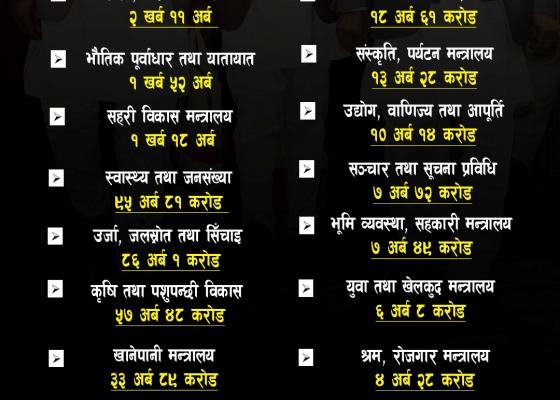 २ खर्ब ११ अर्ब
भौतिक पूर्वाधार तथा यातायात
१ खर्ब ५२ अर्ब
सहरी विकास मन्त्रालय
१ खर्ब १८ अर्ब
स्वास्थ्य तथा जनसंख्या
९५ अर्ब ८१ करोड
उर्जा, जलस्रोत तथा सिँचाइ
८६ अर्ब १ करोड
कृषि तथा पशुपन्छी विकास
५७ अर्ब ४८ करोड
खानेपानी मन्त्रालय
३३ अर्ब ८९ करोड
१८ अर्ब ६१ करोड
संस्कृति, पर्यटन मन्त्रालय
१३ अर्ब २८ करोड
उद्योग, वाणिज्य तथा आपूर्ति
१० अर्ब १४ करोड
सञ्चार तथा सूचना प्रविधि
७ अर्ब ७२ करोड
भूमि व्यवस्था, सहकारी मन्त्रालय
७ अर्ब ४९ करोड
युवा तथा खेलकुद मन्त्रालय
६ अर्ब ८ करोड
श्रम, रोजगार मन्त्रालय
४ अर्ब २८ करोड